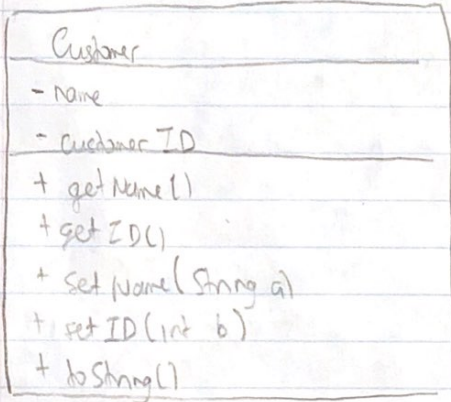 Customer
- name
- customer ID
+ getName()
+ getID()
+ setName(String a)
+ setID(int b)
+ toString()